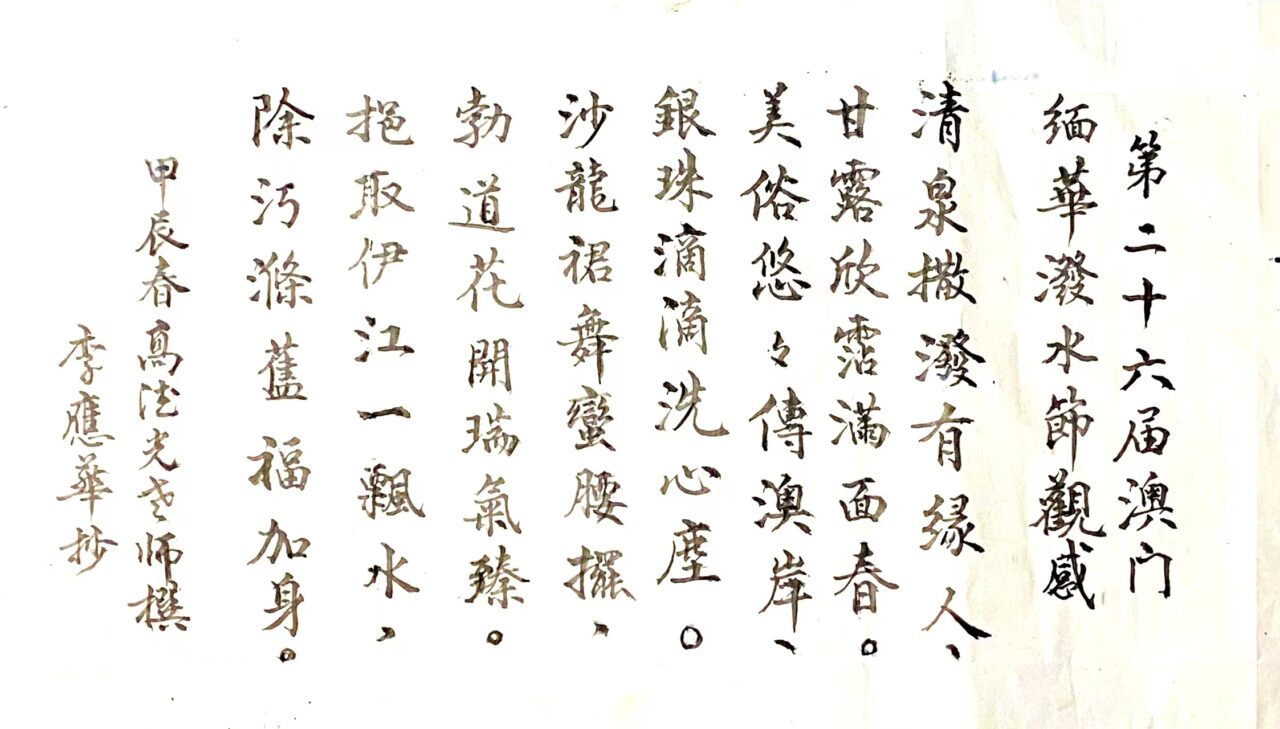 第二十六届澳门
缅華潑水節觀感
清泉撒潑有緣人、
甘露欣霑滿面春。
美俗悠々傳澳岸、
銀珠滴滴洗心塵。
沙龍裙舞蠻腰擺、
勃道花開瑞氣臻。
挹取伊江一瓢水、
除污滌舊福加身。
甲辰春高德光老师撰
李應華抄